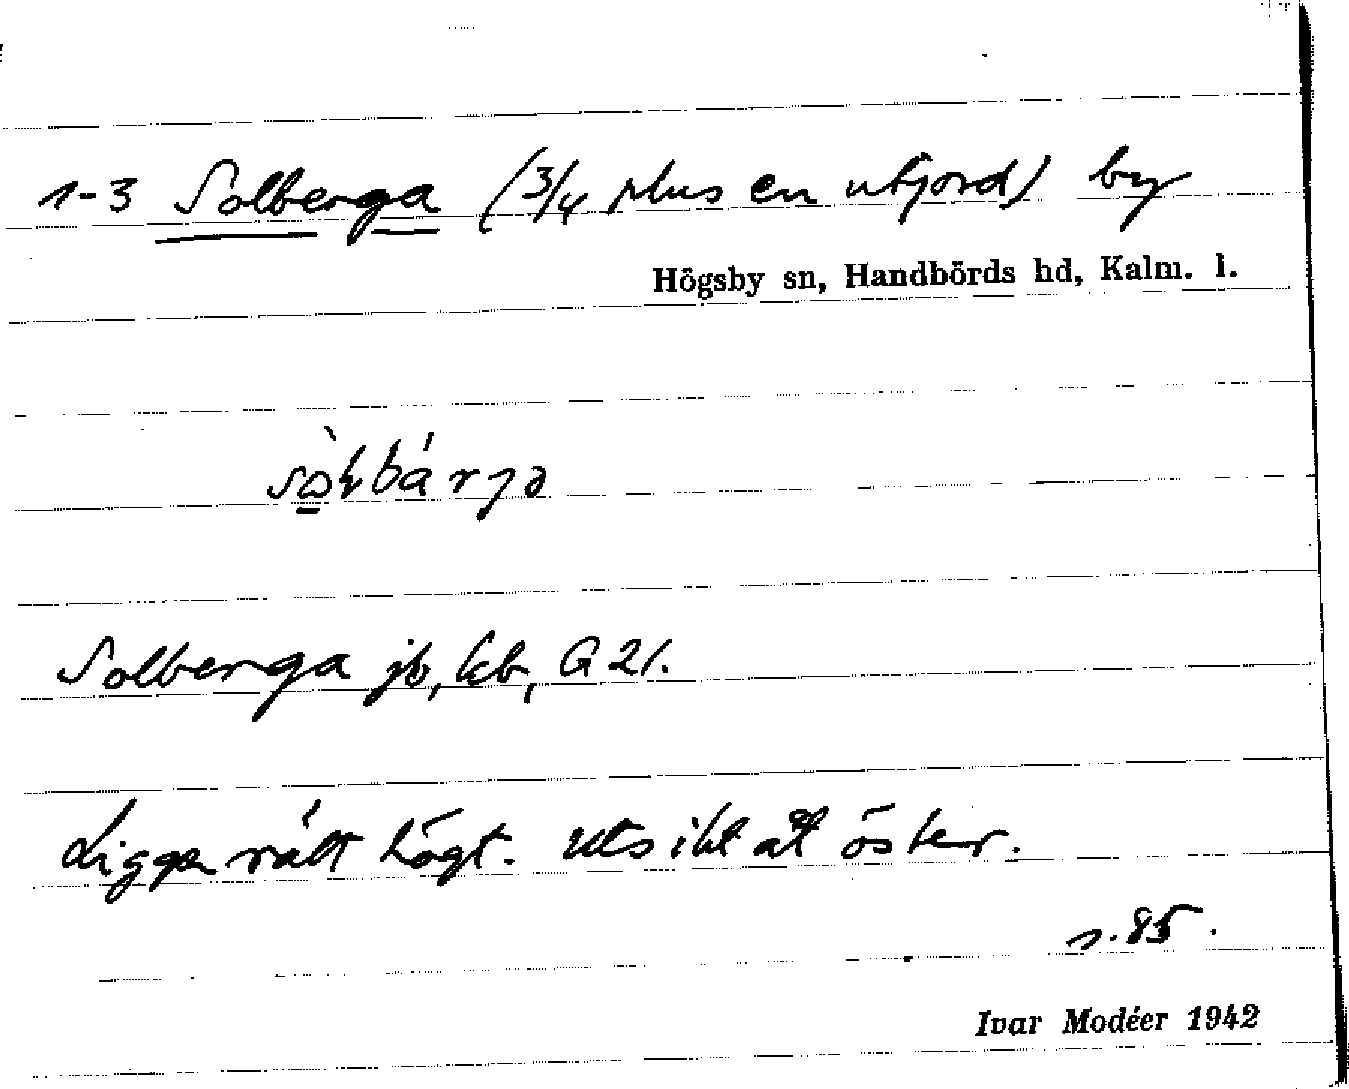 1-3 Solberga (3/4 plus en utjord) by
Högsby sn, Handbörds hd, Kalm. l.
Solberga jb, kb, G 21.
Ligger rätt högt. Utsikt åt öster.
s. 85.
Ivar Modéer 1942